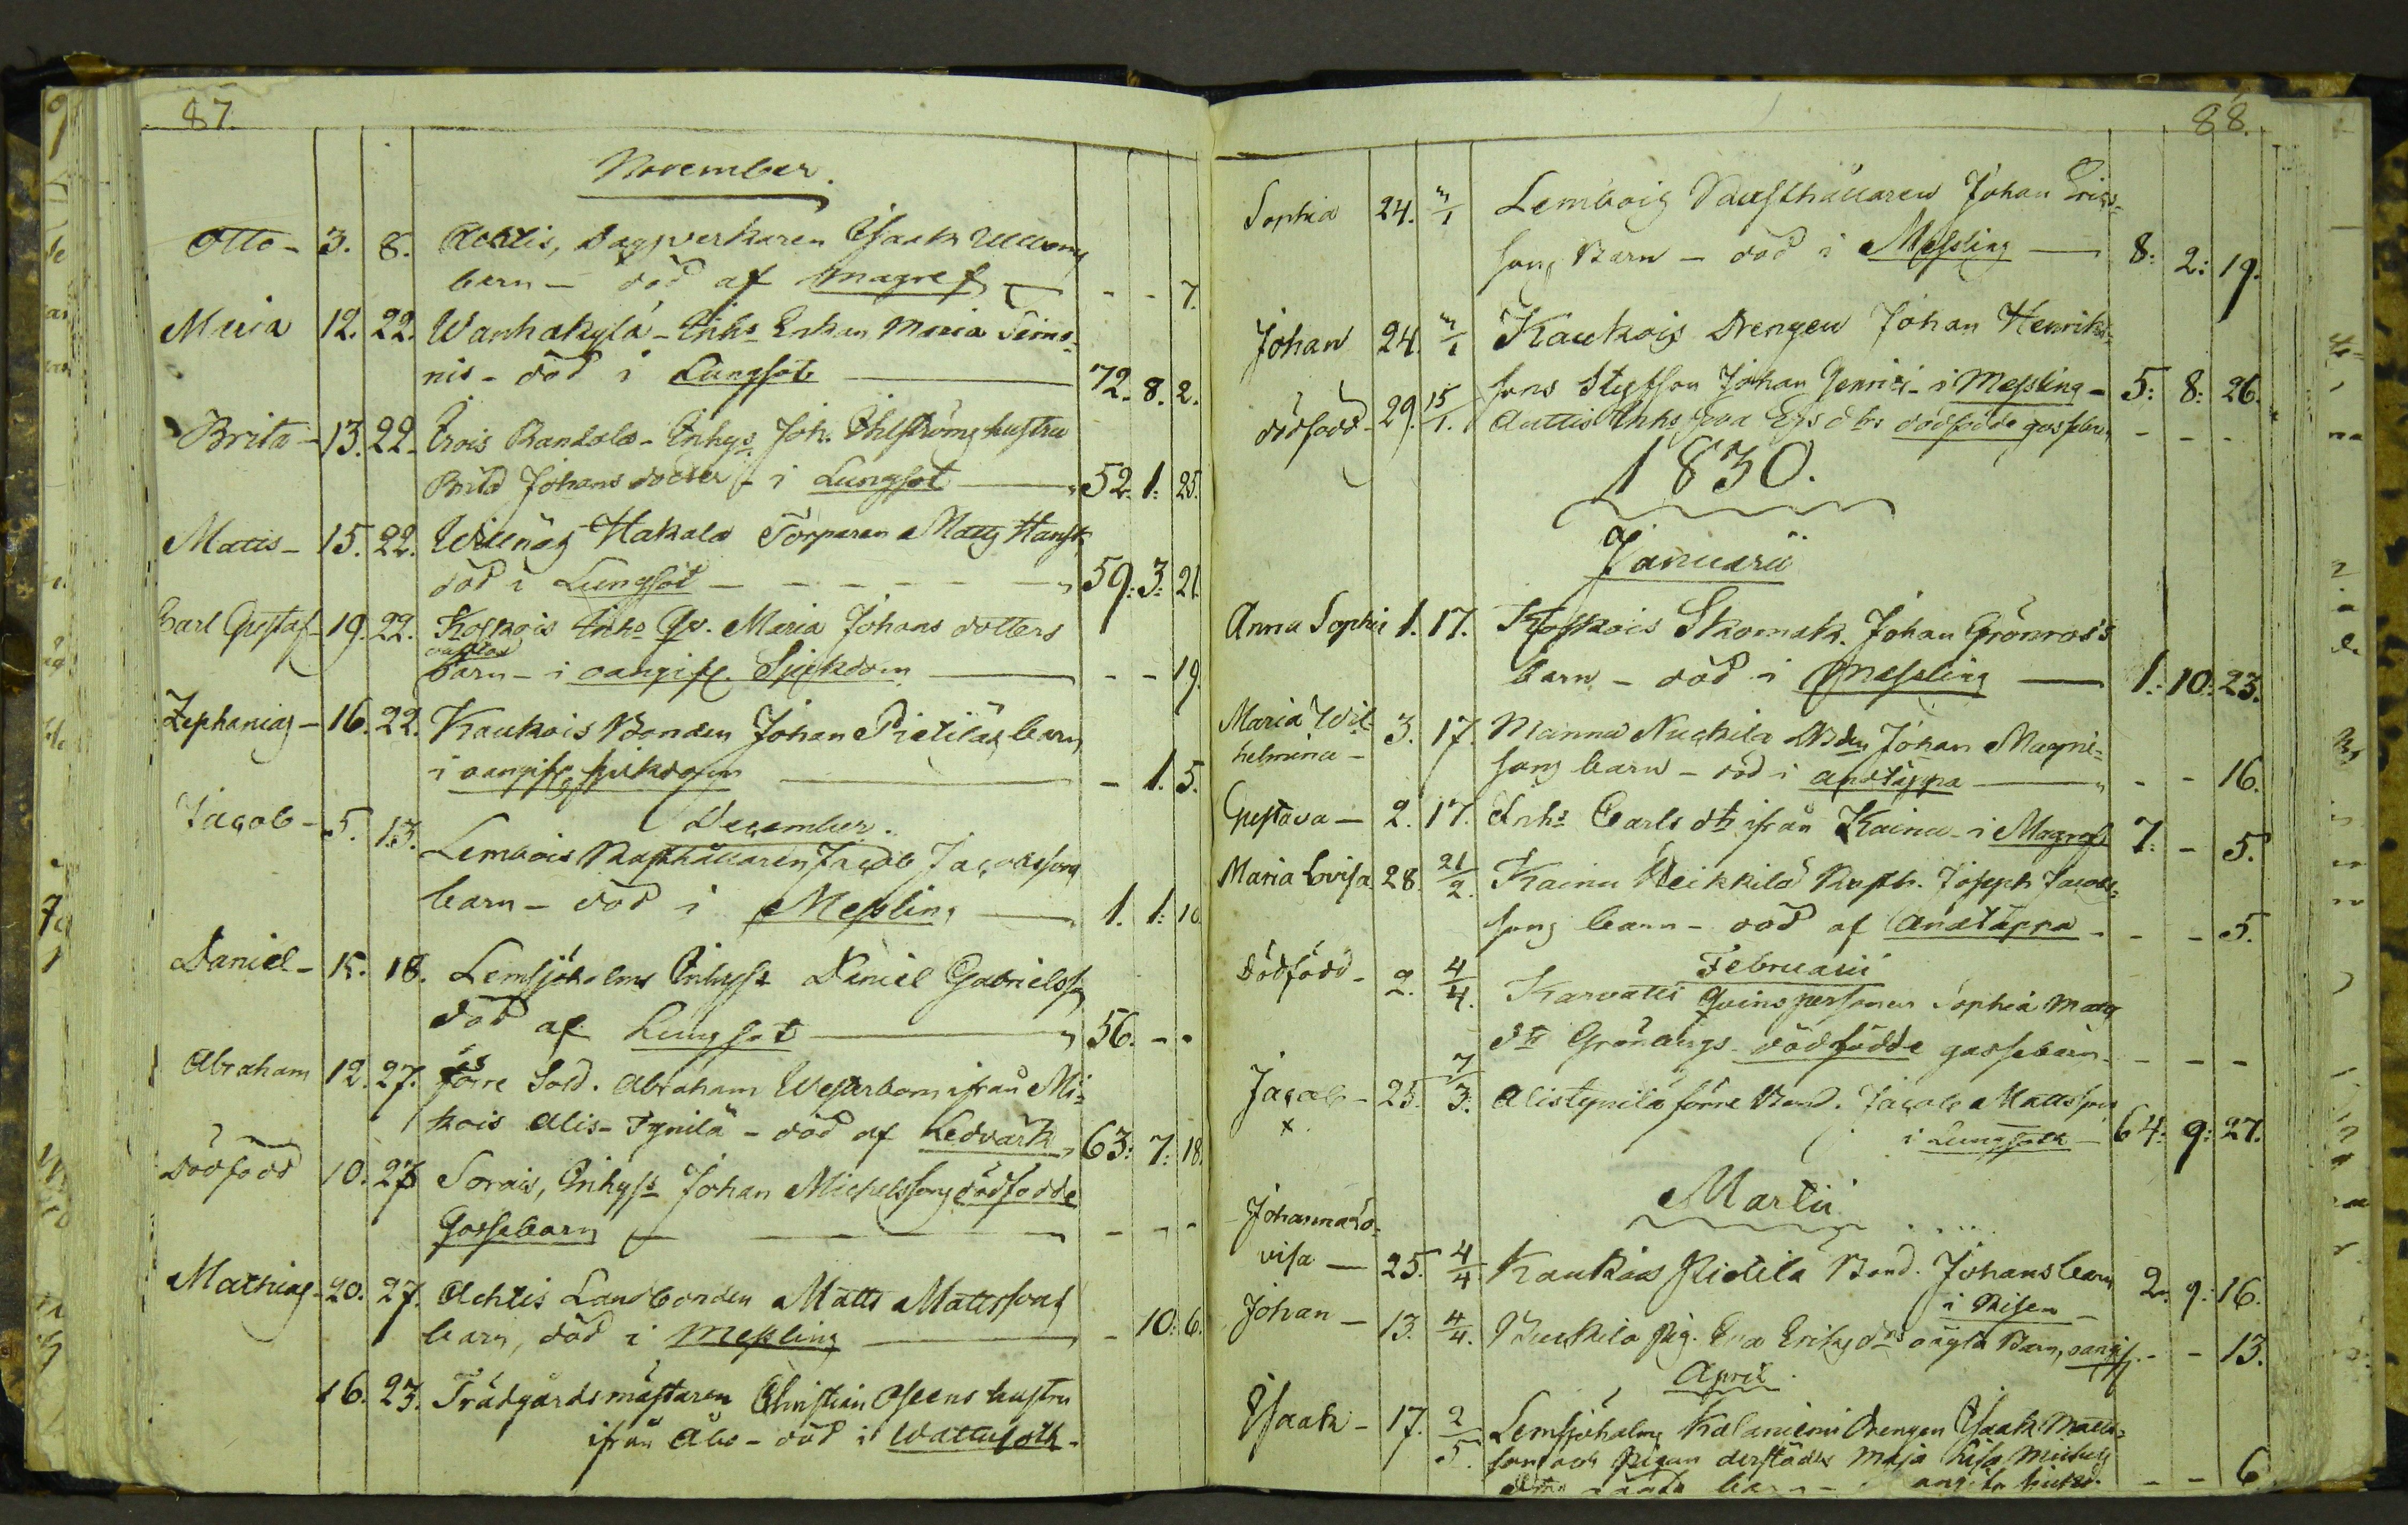 87.
November.
Otto - 3. 8. Achtis, Dagsverkaren Isaak
barn - död af magref - - 7.
Maria 12. 22. Wanhakylä - Inhs Enkan Maria Simo-
nis - död i Lungsot 72. 8. 2.
Brita - 13. 22. Irois Bandola - Inhys. Joh. Öhlströms hustru
Brita Johans dotter - i Lungsot 52. 1. 25.
Matts - 15. 22. Willnäs Hakala Torparen Matts Hanss
död i Lungsot 59. 3. 21.
Carl Gustaf - 19. 22. Koskois Inhs Qv. Maria Johans dotters
oägta
barn - i oangifv. Sjukdom - - 19.
Zephanias - 16. 22. Kaukois Bonden Johan Pietiläs barn
i oangifv. sjukdom - 1. 5.
December.
Jacob - 5. 13. Lembois Rusthållaren Jacob Jacobssons
barn - död i Messling 1. 1. 10
Daniel - 15. 18. Lemsjöholms Inhyss Daniel Gabrielss
död af Lungsot 56. - -
Abraham 12. 27. förre Sold. Abraham Westerbom ifrån Mi-
kois Alis-Tynilä - död af Ledvärk 63: 7: 18.
Dödfödd 10. 27 Sorais, Inhyss Johan Michelssons dödfödde
Gossebarn - - -
Mathias - 20. 27. Achtis Landbonden Matts Mattssons
barn, död i Messling - 10: 6.
16. 23. Trädgårdsmästaren Christian hustru
ifrån Åbo - död i Wattusotk.
88.
Sophia 24. 3/1 Lembois Rusthållaren Johan Erics-
sons Barn - död i Messling 8: 2: 19.
Johan 24. 3/1 Kaukois Drengen Johan Henriks-
sons Styfson Johan Henrici - i Messling - 5: 8: 26.
dödfödd - 29. 15/1. Auttis Inhs dödfödda gossebr. - - -
1830.
Januarii
Anna Sophia 1. 17. Koskois Skomak. Johan Grönroos's
barn - död i Messling 1: 10: 23.
Maria Wil-
helmina - 3. 17. Manna Nuckila Bdn Johan Magni-
sons barn - död i andtäppa - - 16.
Gustava - 2. 17. Inhs Carls dtr ifrån Kainu - i Magref 7: - 5.
Maria Lovisa 28. 21/2. Kainu Heikkilä Rusth. Joseph Jacobs-
sons barn - död af Andtäppa - - 5.
Februarii
Dödfödd - 2. 4/4. Karvatti Qvinspersonen Sophia Matts
dtr Grönbergs dödfödde gossebarn - - -
Jacob - 25. 7/3. Alistynilä förre Bond. Jacob Mattsson
x i Lungsotk 64: 9: 27.
Martii
Johanna Lo-
visa - 25. 4/4 Kaukois Pietilä Bond. Johans barn
i Risen - 2. 9: 16.
Johan - 13. 4/4. Buckila Pig. Eva Eriks drs oägta Barn, oangif. - - 13.
April.
Isaak - 17. 2/5. Lemsjöholms Kalaniemi Drengen Isaak Matts-
son och Pigan derstädes Maja Lisa Michels
barn - - - 6